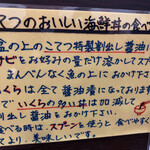 こてつのおいしい海鮮丼の食べ
盆の上のこてつ特製割出し醤油に
ワサビをお好みの量だけ溶かしてスプ
まんべんなく魚の上におかけ下
いくらは全て醤油漬になっております
でいくらの多い丼は加減して
出し醤油をおかけ下さい。
食べる時は、スプーンを使うと食べやすく
より美味しいです。